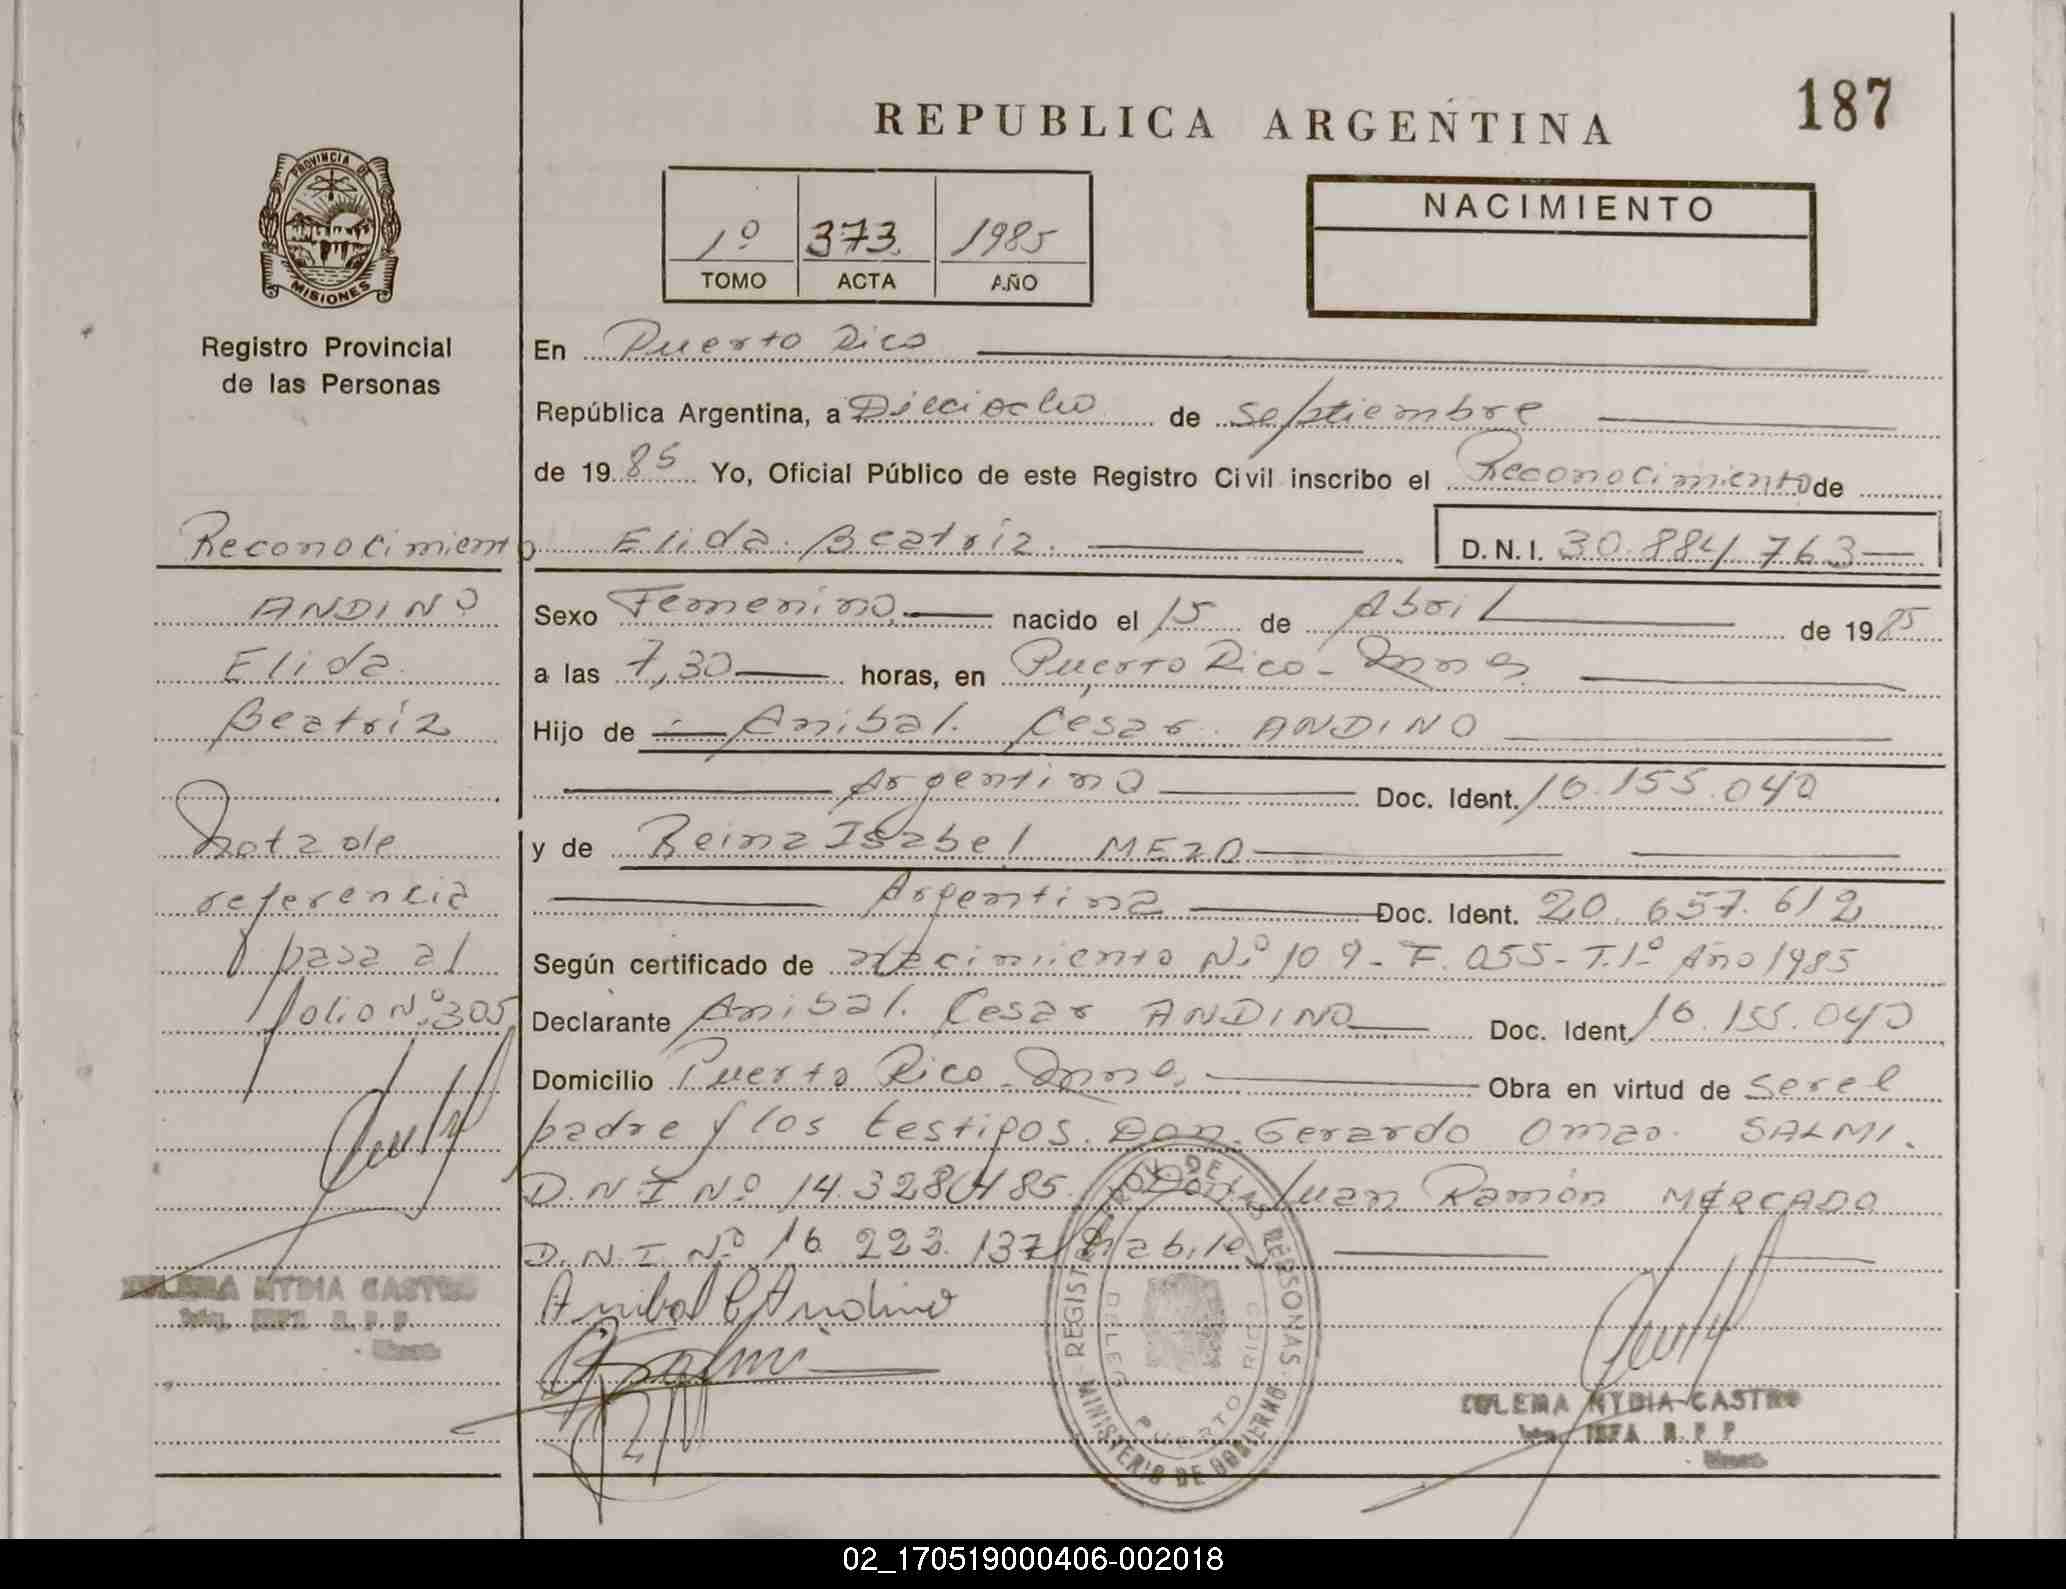 187
REPUBLICA ARGENTINA
PROVINCIA DE
MISIONES
Registro Provincial
de las Personas
1º 373. 1985
TOMO ACTA AÑO
NACIMIENTO
En Puerto Rico
República Argentina, a Dieciocho de septiembre
de 1985 Yo, Oficial Público de este Registro Civil inscribo el Reconocimiento de
Elida Beatríz. D.N.I. 30.884.763
Sexo Femenino nacido el 15 de Abril de 1985
a las 7,30 horas, en Puerto Rico - Mnes
Hijo de Anibal Cesar ANDINO
Argentino Doc. Ident. 16.155.040
y de Reina Isabel MEZA
Argentina Doc. Ident. 20.657.612
Según certificado de Nacimiento Nº 109 - F. 055 - T. 1º Año 1985
Declarante Anibal Cesar ANDINO Doc. Ident. 16.155.040
Domicilio Puerto Rico - Mnes. Obra en virtud de ser el
padre y los testigos. Don. Gerardo Omar SALMI.
D.N.I Nº 14.328.485. y Don Juan Ramón MERCADO
D.N.I. Nº 16.223.137 Habiles
Anibal C Andino
Reconocimiento
ANDINO
Elida
Beatríz
Nota de
referencia
pasa al
folio Nº 305
REGISTRO DE LAS PERSONAS
MINISTERIO DE GOBIERNO
PUERTO RICO
ZULEMA NYDIA CASTRO
R. P. P
ZULEMA NYDIA CASTRO
R. P. P
02_170519000406-002018